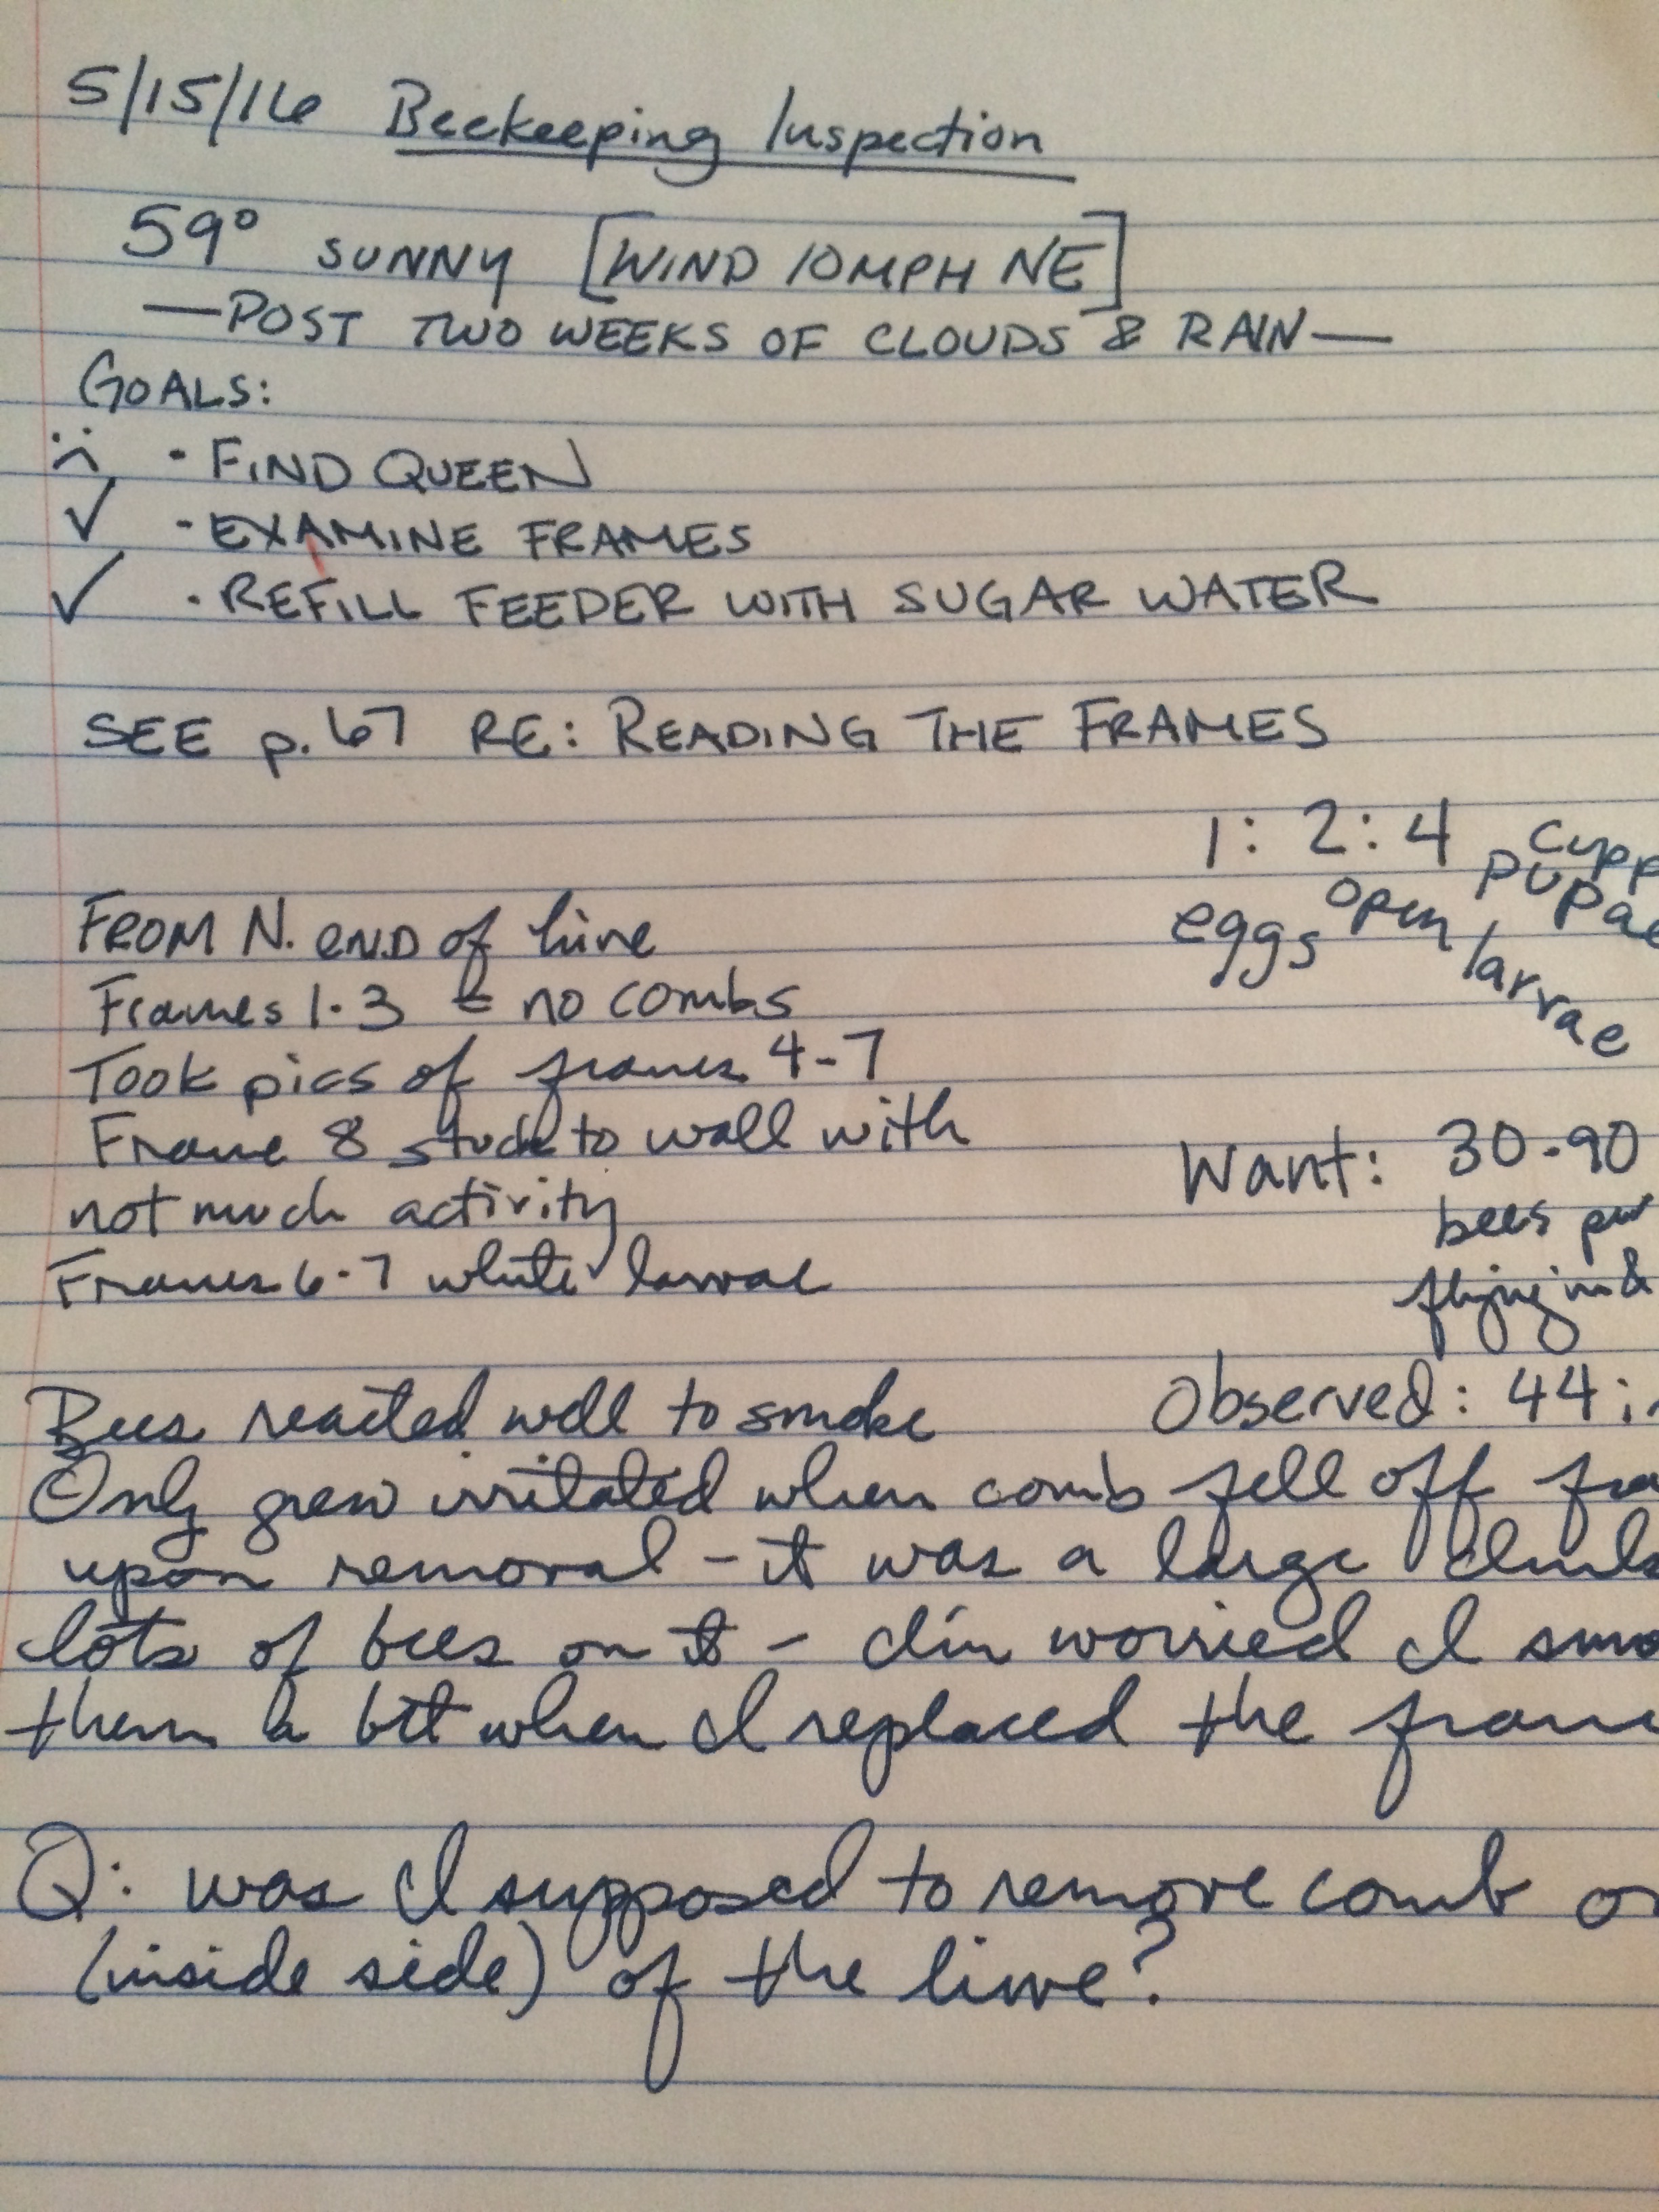 5/15/16 Beekeeping Inspection
59° SUNNY [WIND 10MPH NE]
—POST TWO WEEKS OF CLOUDS & RAIN—
GOALS:
:( · FIND QUEEN
✓ - EXAMINE FRAMES
✓ · REFILL FEEDER WITH SUGAR WATER
SEE p. 67 RE: READING THE FRAMES
1 : 2 : 4
eggs open larvae pupae
FROM N. END of hive
Frames 1-3 = no combs
Took pics of frames 4-7
Frame 8 stuck to wall with
not much activity
Frames 6-7 white larvae
Want: 30-90
bees per
flying in &
Observed: 44
Bees reacted well to smoke
Only grew irritated when comb fell off
upon removal - it was a large
lots of bees on it - I'm worried I
them a bit when I replaced the
Q: was I supposed to remove comb
(inside side) of the hive?